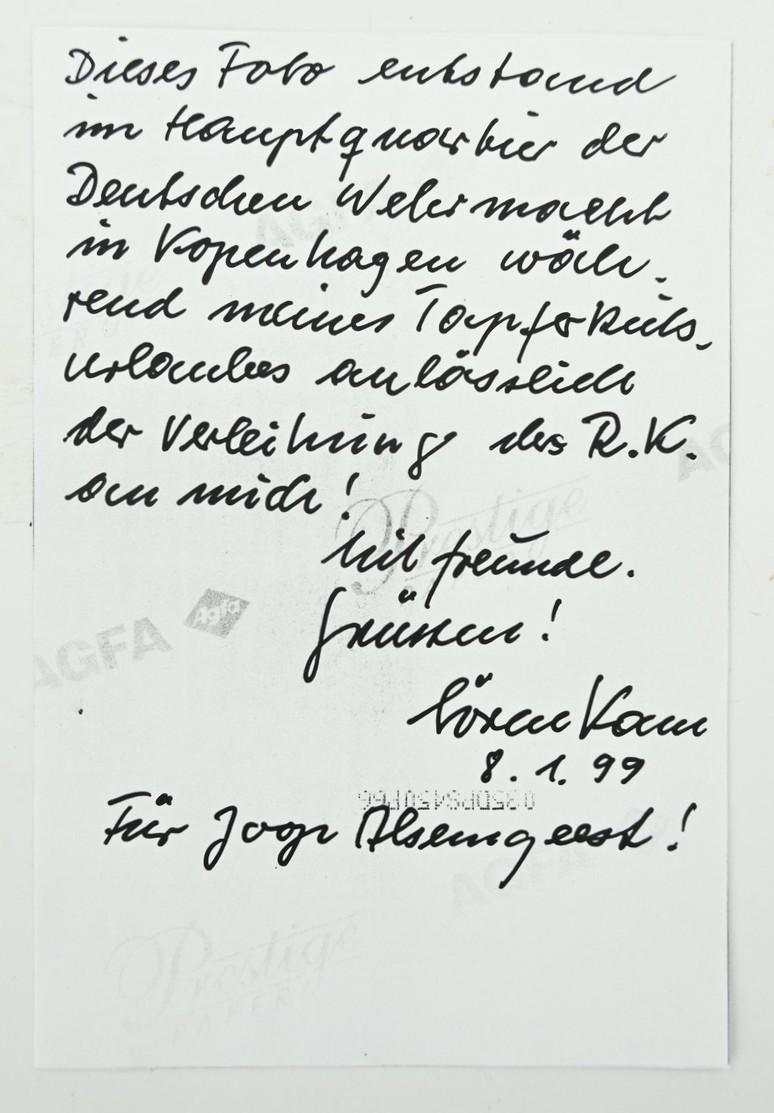 Dieses Foto entstand
im Hauptquartier der
Deutschen Wehrmacht
in Kopenhagen wäh-
rend meines Tapferkeits-
urlaubes anlässlich
der Verleihung des R.K.
an mich!
Mit freundl.
Grüssen!
Sören Kam
8.1.99
Für Joop Alsemgeest!
AGFA
AGFA
Prestige
Agfa
AGFA
AGFA
Prestige
PAPER